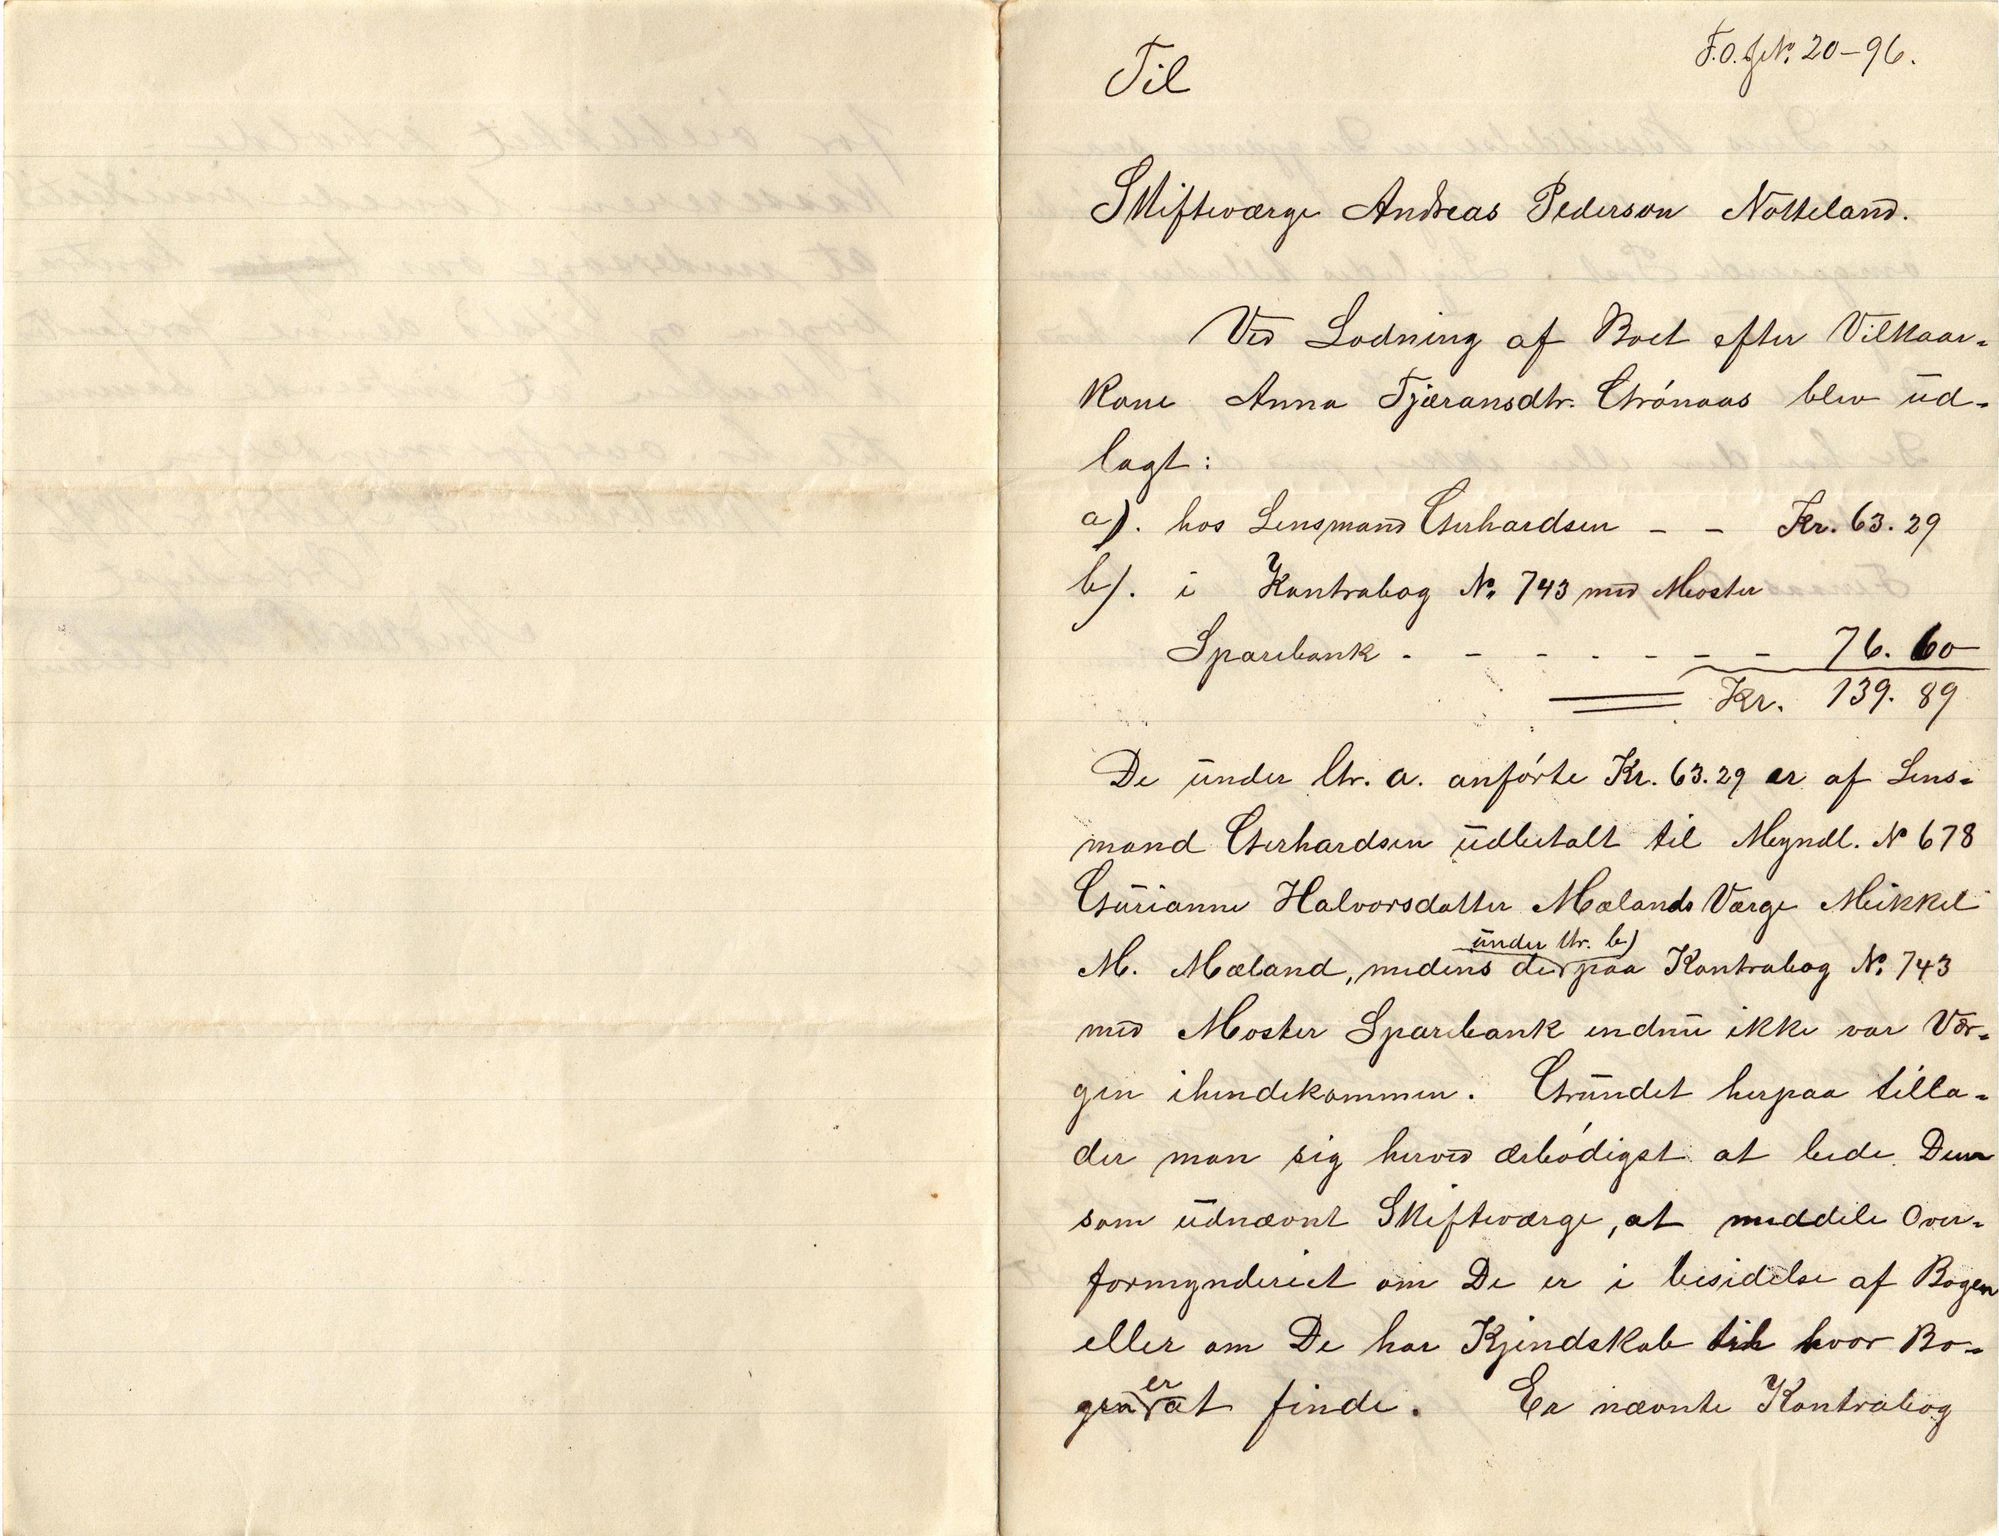 F.O. J.№ 20-96.
Til
Skifteværge Andreas Pederson Notteland.
Ved Lodning af Boet efter Vilkaar-
kone Anna Tjæransdtr. Grónaas blev ud-
lagt:
a). hos Lensmand Gerhardsen - - Kr. 63.29
b). i Kontrabog №. 743 med Moster
Sparebank - - - - - - - 76.60
Kr. 139.89
De under ltr. a. anfórte Kr. 63.29 er af Lens-
mand Gerhardsen udbetalt til Myndl. № 678
Gurianne Halvorsdatter Mælands Værge Mikkel
M. Mæland, medens de under ltr. b) paa Kontrabog №. 743
med Moster Sparebank endnu ikke var Vær-
gen ihendekommen. Grundet herpaa tilla-
der man sig herved ærbódigst at bede Dem
som udnævnt Skifteværge, at meddele Over-
formynderiet om De er i besidelse af Bogen
eller om De har Kjendskab til hvor Bo-
gen er at finde. Er nævnte Kontrabog